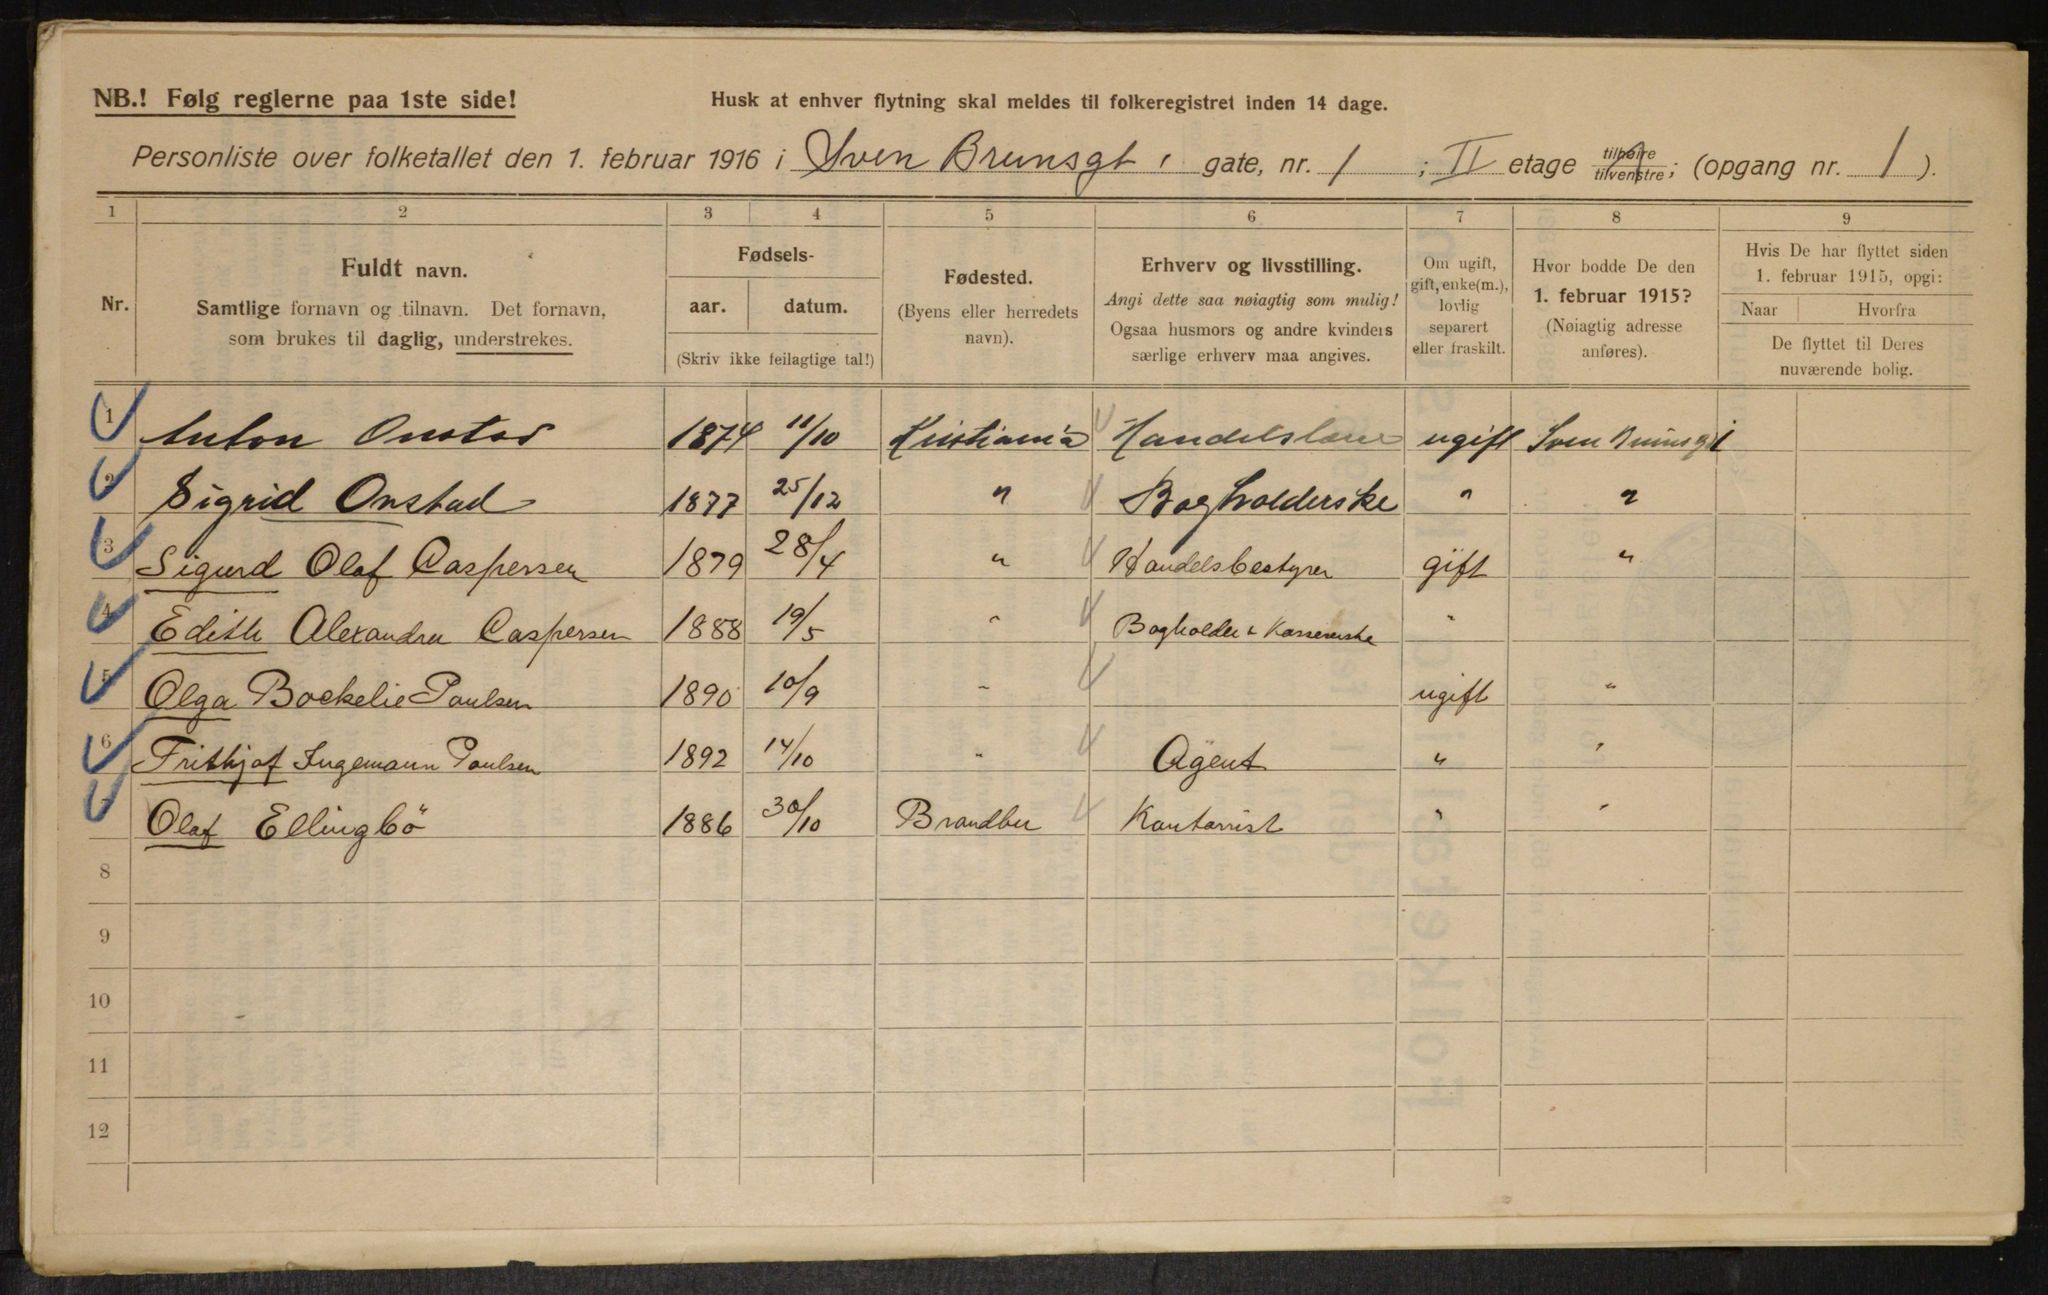 NB.! Følg reglerne paa 1ste side!
Husk at enhver flytning skal meldes til folkeregistret inden 14 dage.
Personliste over folketallet den 1. februar 1916 i Sven Brunsgt. gate, nr. 1 ; II etage tilhøire tilvenstre; (opgang nr. 1 ).
1 2 3 4 5 6 7 8 9
Nr.
Fuldt navn.
Samtlige fornavn og tilnavn. Det fornavn,
som brukes til daglig, understrekes.
Fødsels-
aar. datum.
(Skriv ikke feilagtige tal!)
Fødested.
(Byens eller herredets
navn).
Erhverv og livsstilling.
Angi dette saa nøiagtig som mulig!
Ogsaa husmors og andre kvinders
særlige erhverv maa angives.
Om ugift,
gift, enke(m.),
lovlig
separert
eller fraskilt.
Hvor bodde De den
1. februar 1915?
(Nøiagtig adresse
anføres).
Hvis De har flyttet siden
1. februar 1915, opgi:
Naar Hvorfra
De flyttet til Deres
nuværende bolig.
1 Anton Onstad 1874 11/10 Kristiania ugift Sven Brunsgt
2 Sigrid Onstad 1877 25/12 " Bogholderske " "
3 Sigurd Olaf Caspersen 1879 28/4 " Handelsbestyrer gift "
4 Edith Alexandra Caspersen 1888 19/5 " Bogholder & Kassererske "
5 Olga Bockelie Paulsen 1890 10/9 " ugift "
6 Frithjof Ingemann Paulsen 1892 14/10 " Agent " "
7 Olaf Ellingbö 1886 30/10 Brandbu Kontorrist " "
8
9
10
11
12